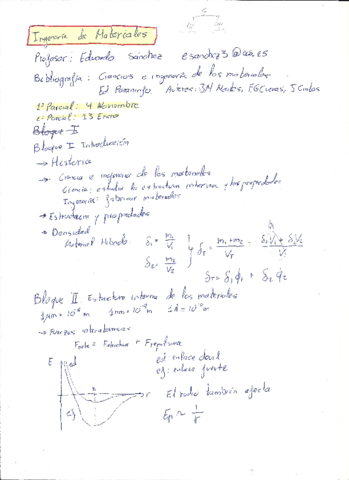 Ingeniería de Materiales
Profesor: Eduardo Sánchez esanchez3@
Bibliografía: Ciencias e ingeniería de los materiales
Ed Paraninfo, Autores: JM Montes, FG Cuevas, J Cintas
1º Parcial: 4 Noviembre
2º Parcial: 13 Enero
Bloque I
Bloque I Introducción
→ Historia
→ Ciencia e ingeniería de los materiales
Ciencia: estudia la estructura interna y las propiedades
Ingeniería: fabricar materiales
→ Estructura y propiedades
→ Densidad
Material Híbrido δ₁ = m₁/V₁ δ₂ = m₂/V₂ } δT = m₁+m₂/VT = δ₁V₁ + δ₂V₂/VT
δT = δ₁ϕ₁ + δ₂ϕ₂
Bloque II Estructura interna de los materiales
1μm = 10⁻⁶ m 1nm = 10⁻⁹ m 1Å = 10⁻¹⁰ m
→ Fuerzas interatómicas
Fneta = Fatractiva + Frepulsiva
E
ed: enlace débil
ef: enlace fuerte
El radio también afecta
Ep ~ 1/r